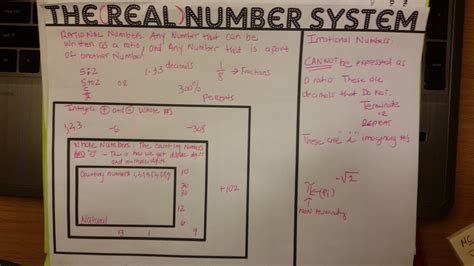 THE (REAL) NUMBER SYSTEM
RATIONAL Numbers: Any Number that can be
written as a ratio, and Any Number that is a part
of another Number.
5:2
5 to 2 or
5/2
1.33 decimals
1/8 → Fractions
300%
percents
Integers ⊕ and ⊖ Whole #'s
1,2,3
-6
-308
WHOLE NUMBERS: The Counting Numbers
AND "0"
Counting Numbers
10
20
30
12
6
Natural
13
1
9
+102
Irrational Numbers:
CANNOT be expressed as
a ratio. These are
decimals that DO NOT
Terminate
or
Repeat
These are "i" imaginary #'s
-√2
π (pi)
NON terminating